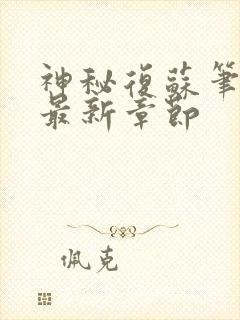 神秘復蘇筆
最新章節
佩克